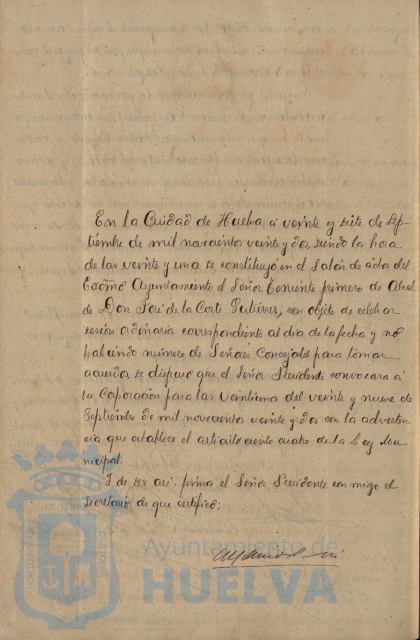 En la Ciudad de Huelva á veinte y siete de Sep-
tiembre de mil novecientos veinte y dos, siendo la hora
de las veinte y una se constituyó en el Salón de actos del
Excmo Ayuntamiento el Señor Teniente primero de Alcal-
de Don José de la Corte Gutierrez, con objeto de celebrar
sesión ordinaria correspondiente al dia de la fecha y no
habiendo número de Señores Concejales para tomar
acuerdo, se dispuso que el Señor Presidente convocara á
la Coporación para las veintiuna del veinte y nueve de
Septiembre de mil novecientos veinte y dos con la adverten-
cia que establece el articulo ciento cuatro de la Ley Mu-
nicipal.
Y de ser asi, firma el Señor Presidente con migo el
Secretario de que certifico:
Ayuntamiento de
HUELVA